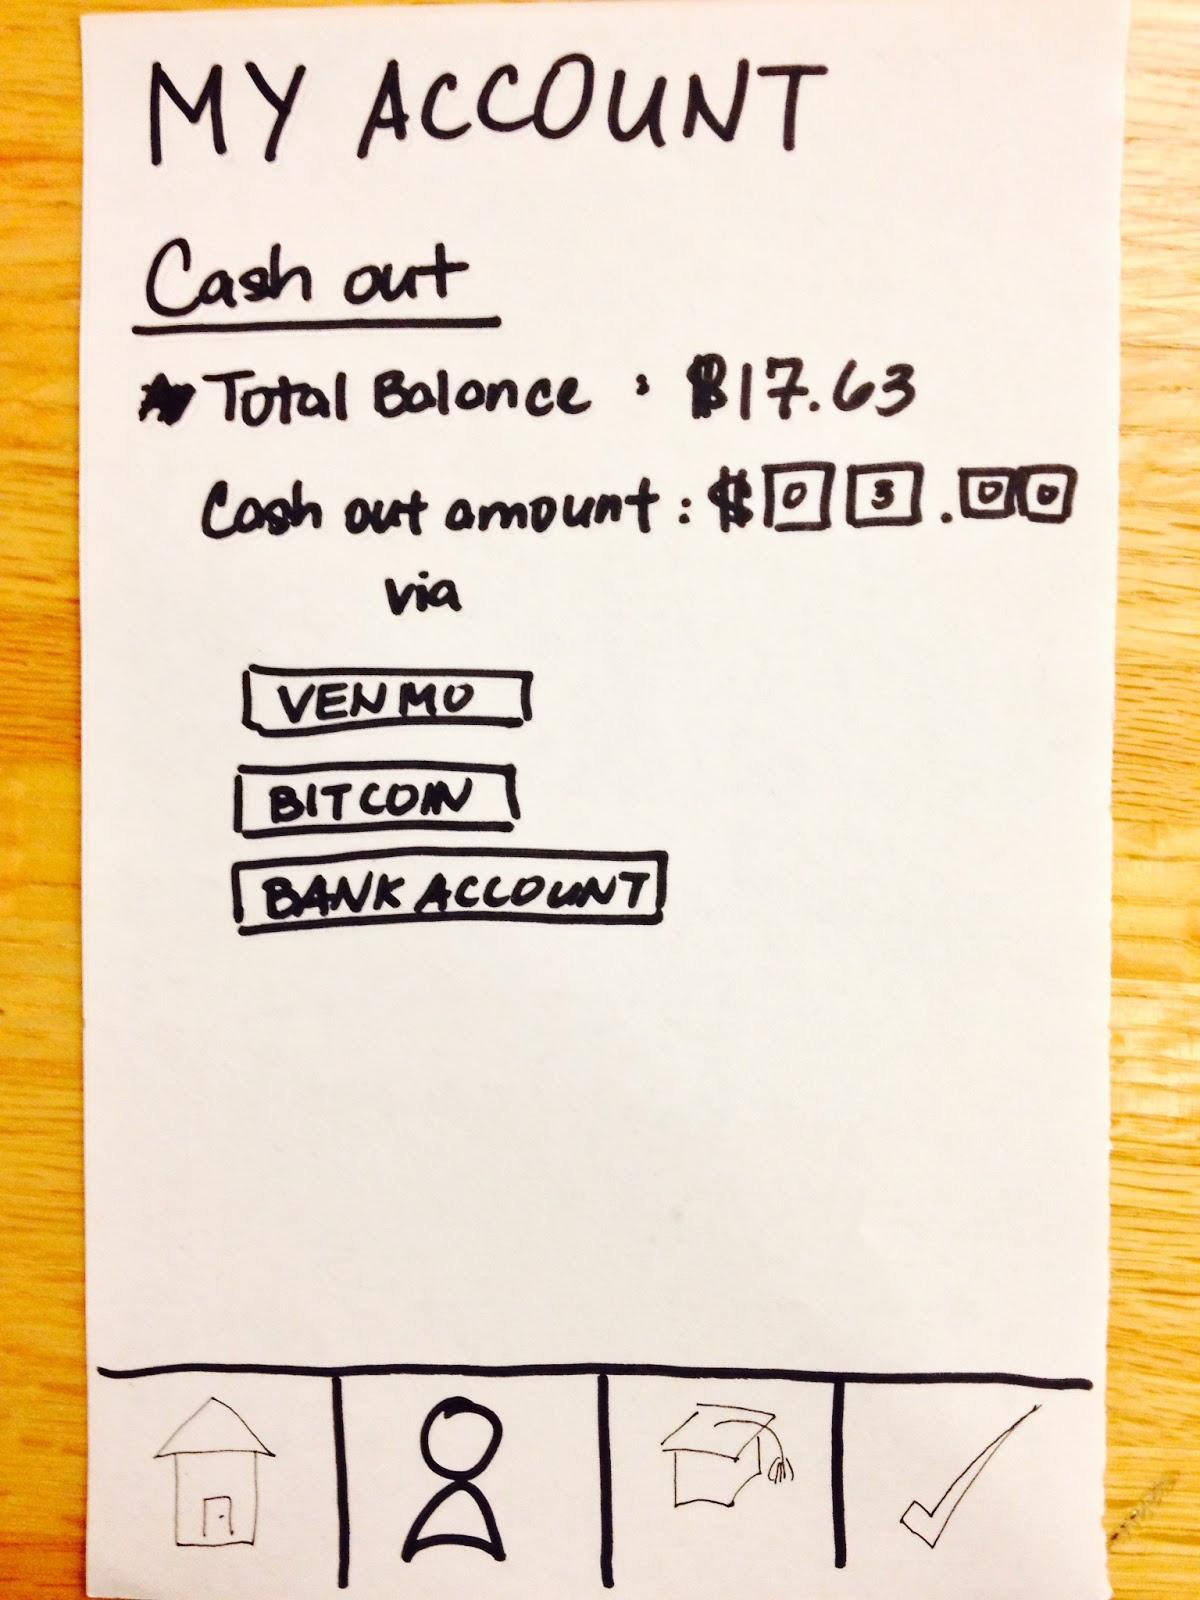 MY ACCOUNT
Cash out
Total Balance : $17.63
Cash out amount : $ 0 3 . 0 0
via
VENMO
BITCOIN
BANK ACCOUNT